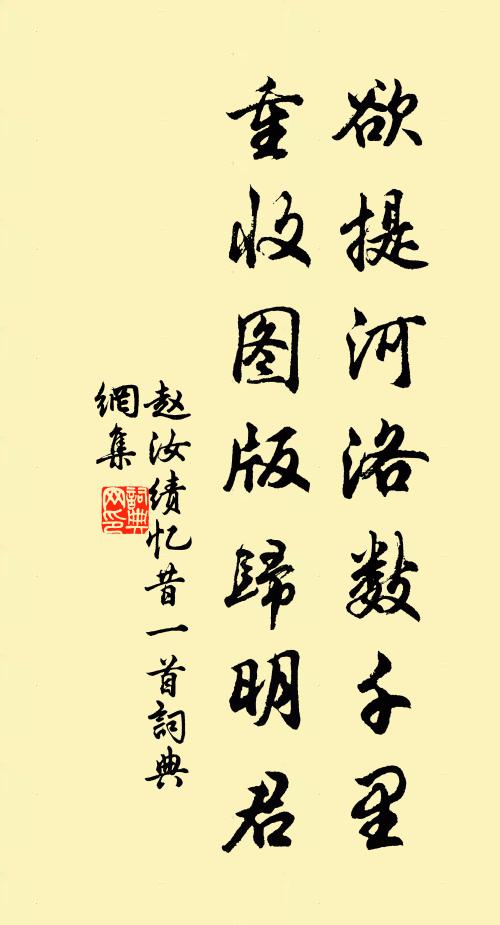 欲提河洛数千里
重收图版歸明君
赵汝绩忆昔一首詞典
網集
詞典
网印